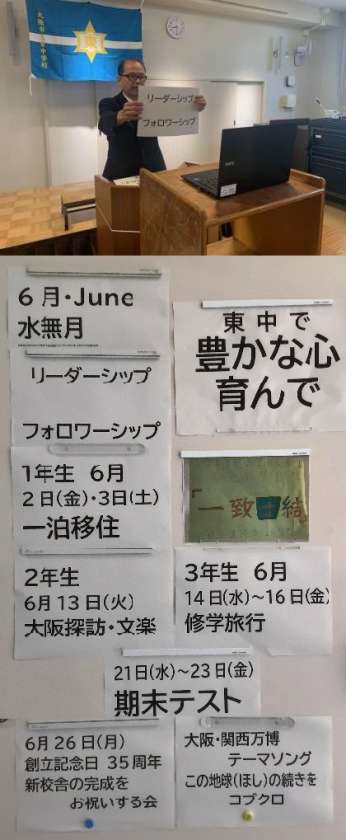 リーダーシップ
フォロワーシップ
6月・June
水無月
リーダーシップ
フォロワーシップ
1年生 6月
2日(金)・3日(土)
一泊移住
2年生
6月13日(火)
大阪探訪・文楽
東中で
豊かな心
育んで
「一致団結
3年生 6月
14日(水)～16日(金)
修学旅行
21日(水)～23日(金)
期末テスト
6月26日(月)
創立記念日 35周年
新校舎の完成を
お祝いする会
大阪・関西万博
テーマソング
この地球(ほし)の続きを
コブクロ